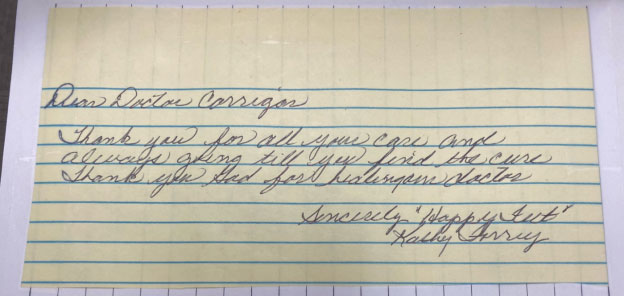 Dear Doctor Corrigan
Thank you for all your care and
always going till you find the cure
Thank you God for healing our doctor
Sincerely "Happy Feet"
Kathy